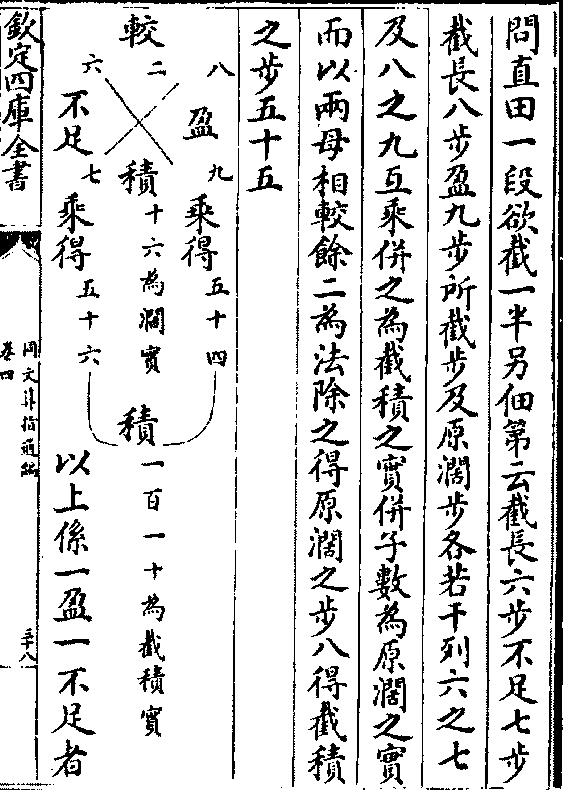 問直田一段欲截一半另佃第云截長六步不足七步
截長八步盈九步所截步及原濶步各若干列六之七
及八之九互乗併之為截積之實併子數為原濶之實
而以兩母相較餘二為法除之得原濶之步八得截積
之步五十五
八 盈 九 乗得 五十四
較 二 積 十六為濶實 積 一百一十為截積實
六 不足 七 乗得 五十六 以上係一盈一不足者
欽定四庫全書
同文算指通編
卷四
三十八